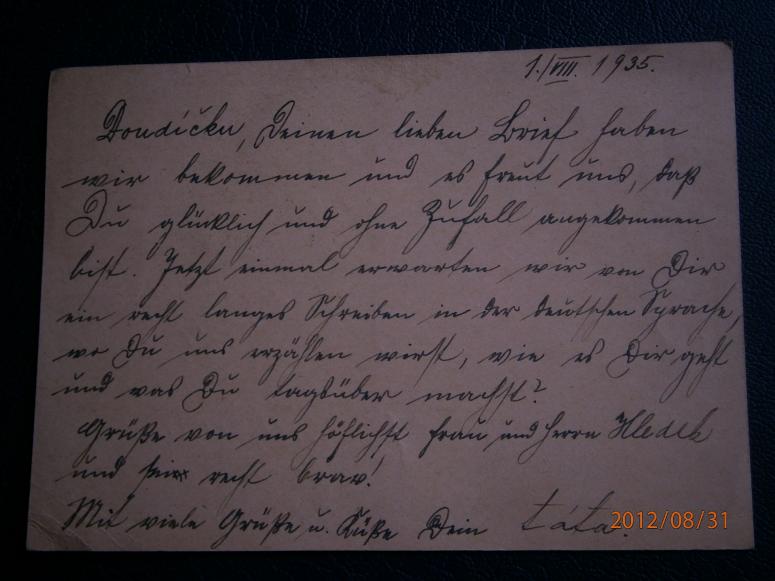 1./VIII. 1935.
Doudíčku, Deinen lieben Brief haben
wir bekommen und es freut uns, daß
Du glücklich und ohne Zufall angekommen
bist. Jetzt einmal erwarten wir von Dir
ein recht langes Schreiben in der deutschen Sprache,
wo Du uns erzählen wirst, wie es Dir geht
und was Du tagsüber machst?
Grüße von uns höflichst Frau und Herrn Hledek
und sei recht brav!
Mit viele Grüße u. Küße Dein táta.
2012/08/31